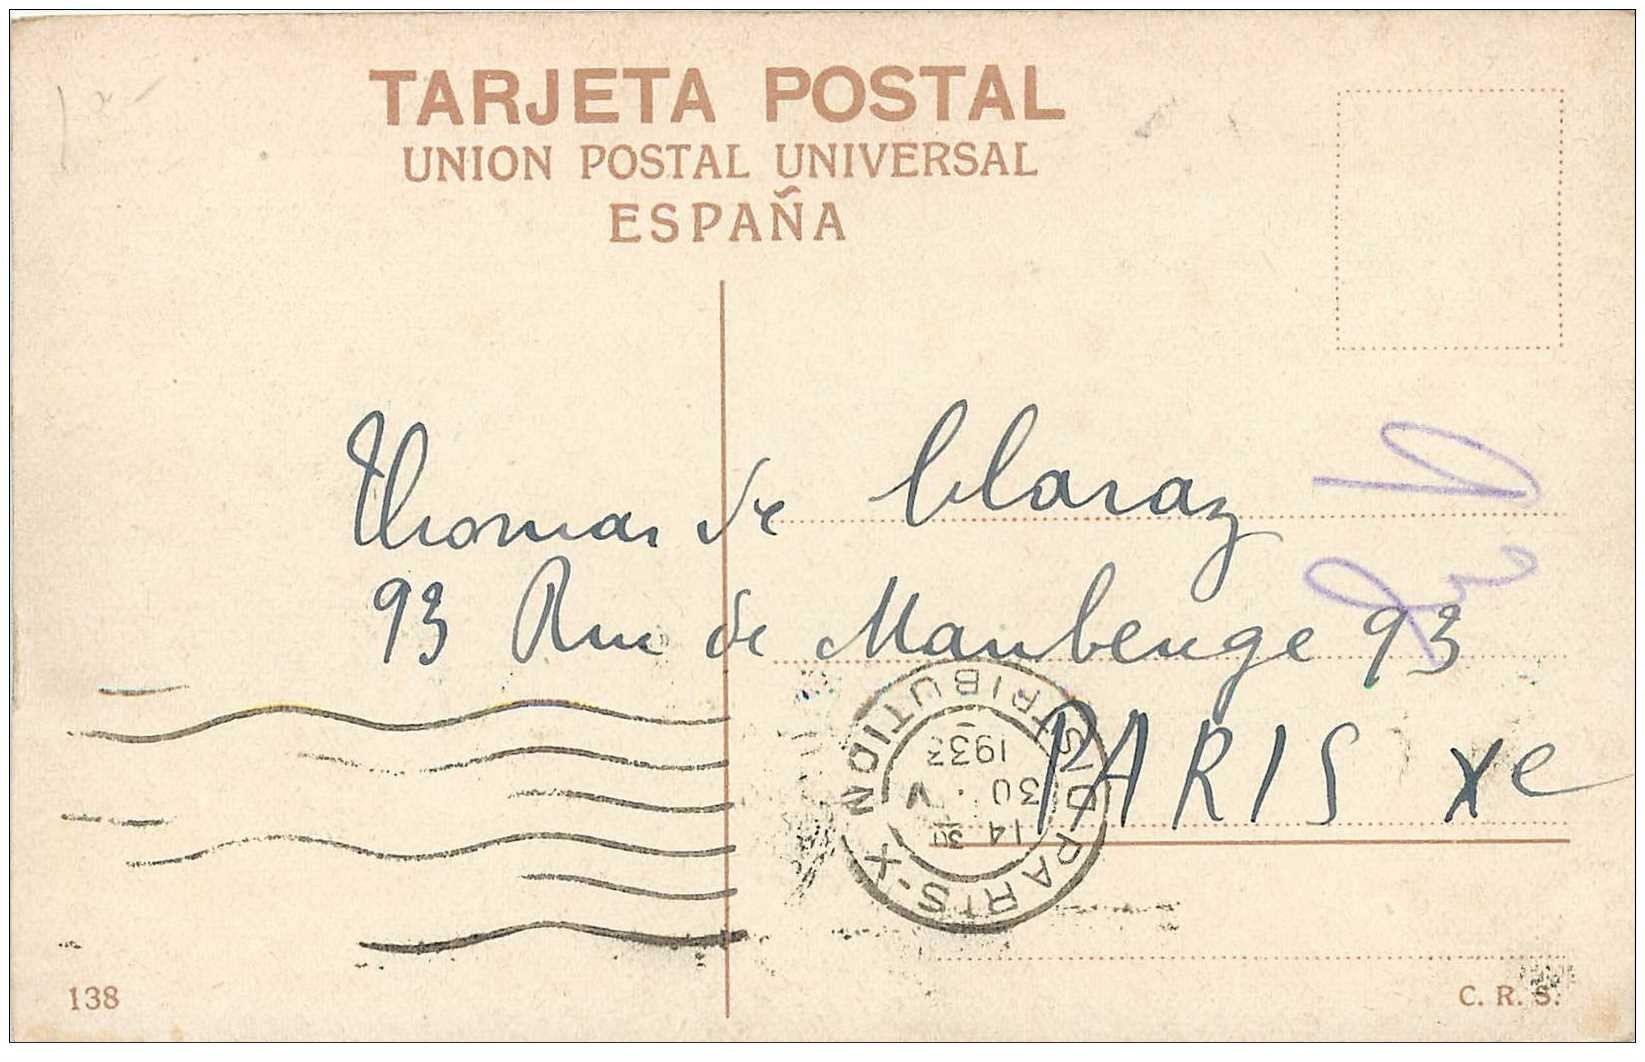 TARJETA POSTAL
UNION POSTAL UNIVERSAL
ESPAÑA
Thomas de Claraz
93 Rue de Maubeuge 93
PARIS Xe
PARIS-X
DISTRIBUTION
14 30
30
1933
138
C. R. S.